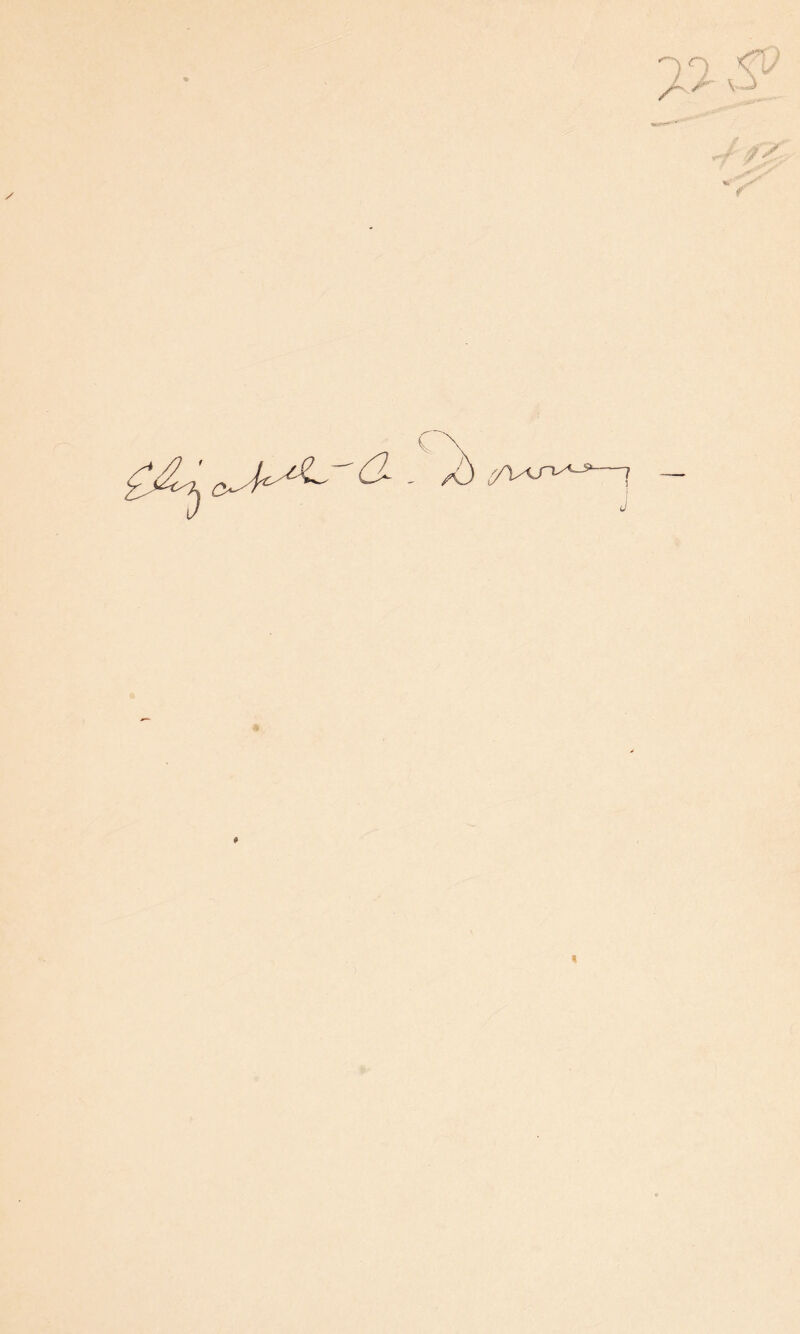 22 50
Elizabeth A. Downing —